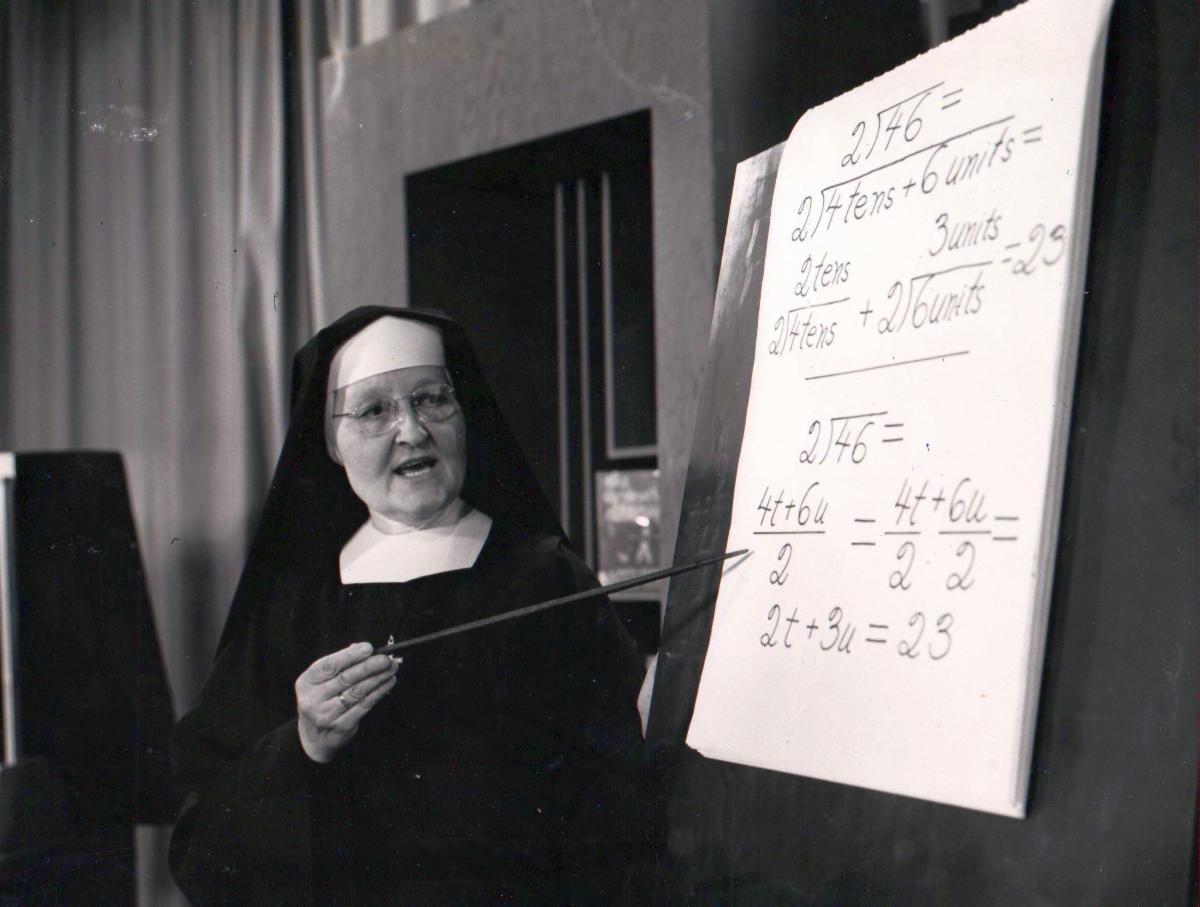 2⟌46 =
2⟌4tens + 6 units =
2tens 3units
2⟌4tens + 2⟌6units = 23
2⟌46 =
4t+6u / 2 = 4t / 2 + 6u / 2 =
2t + 3u = 23